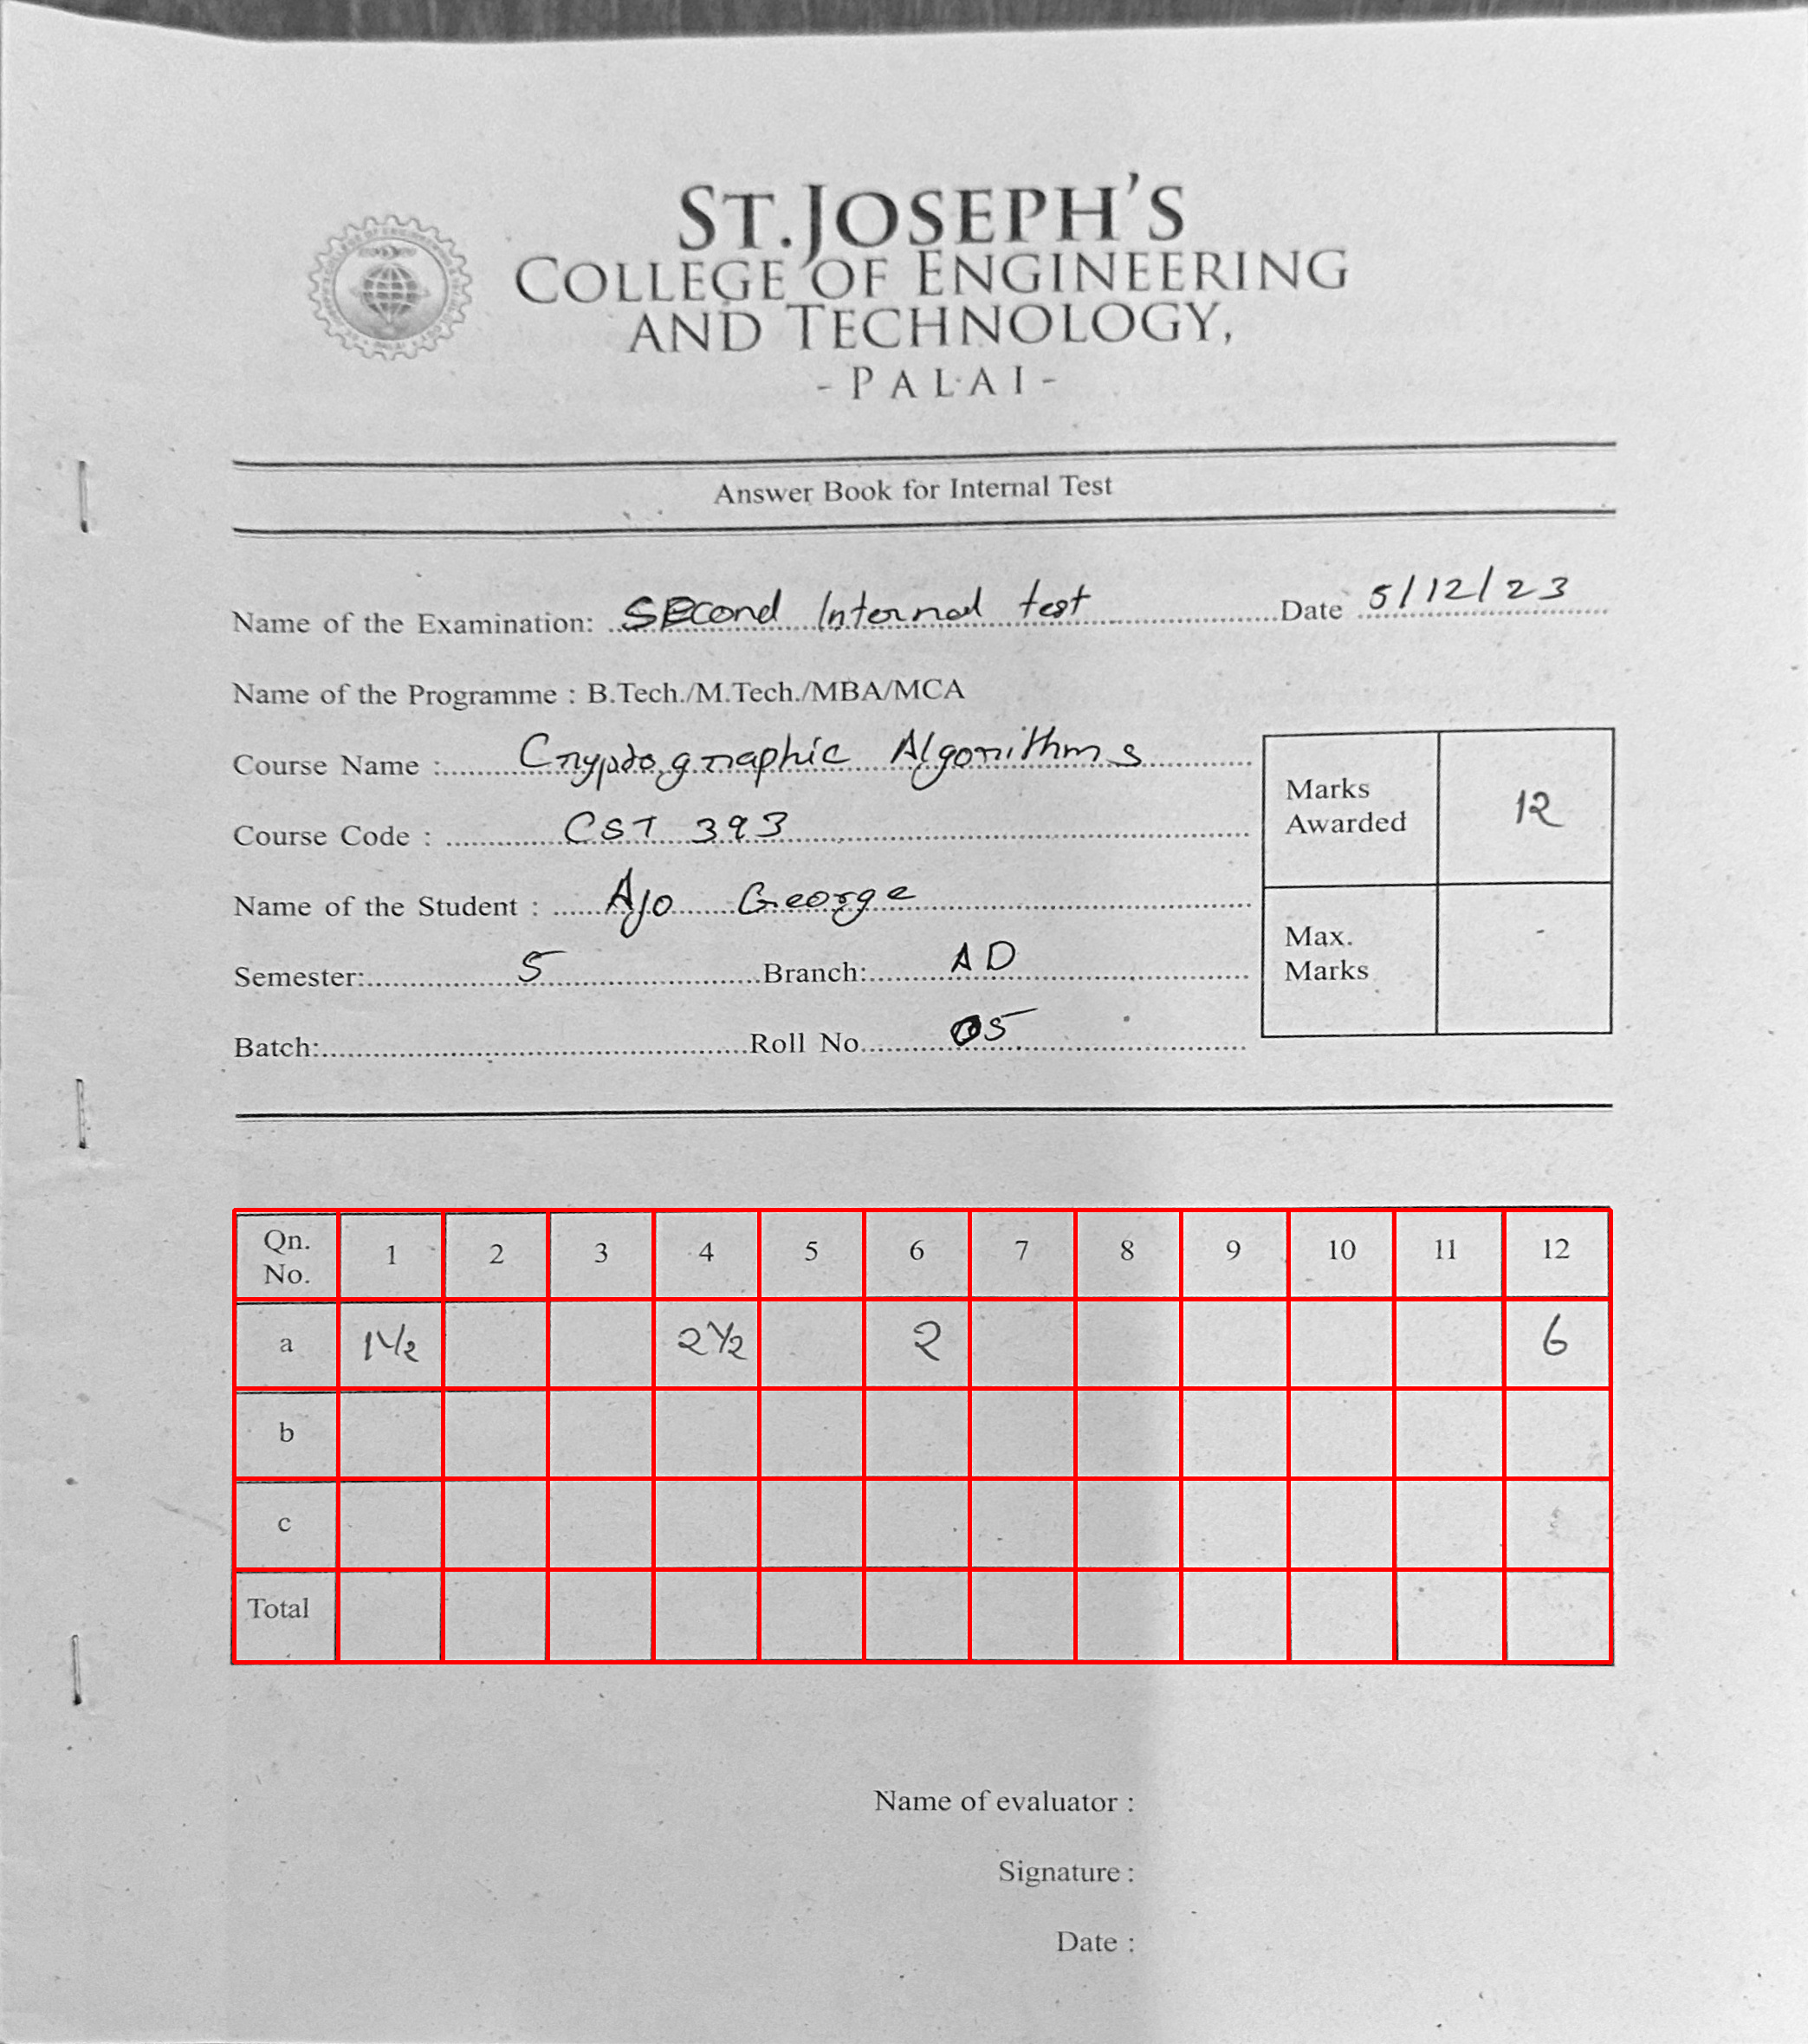 ST.JOSEPH'S
COLLEGE OF ENGINEERING
AND TECHNOLOGY,
- PALAI -
Answer Book for Internal Test
Name of the Examination: SEcond Internal test Date 5/12/23
Name of the Programme : B.Tech./M.Tech./MBA/MCA
Course Name : Cryptographic Algorithms
Course Code : CST 393
Name of the Student : Ajo George
Semester: 5 Branch: AD
Batch: Roll No. 05
Marks Awarded 12
Max. Marks
Qn. No. 1 2 3 4 5 6 7 8 9 10 11 12
a 1½ 2½ 2 6
b
c
Total
Name of evaluator :
Signature :
Date :